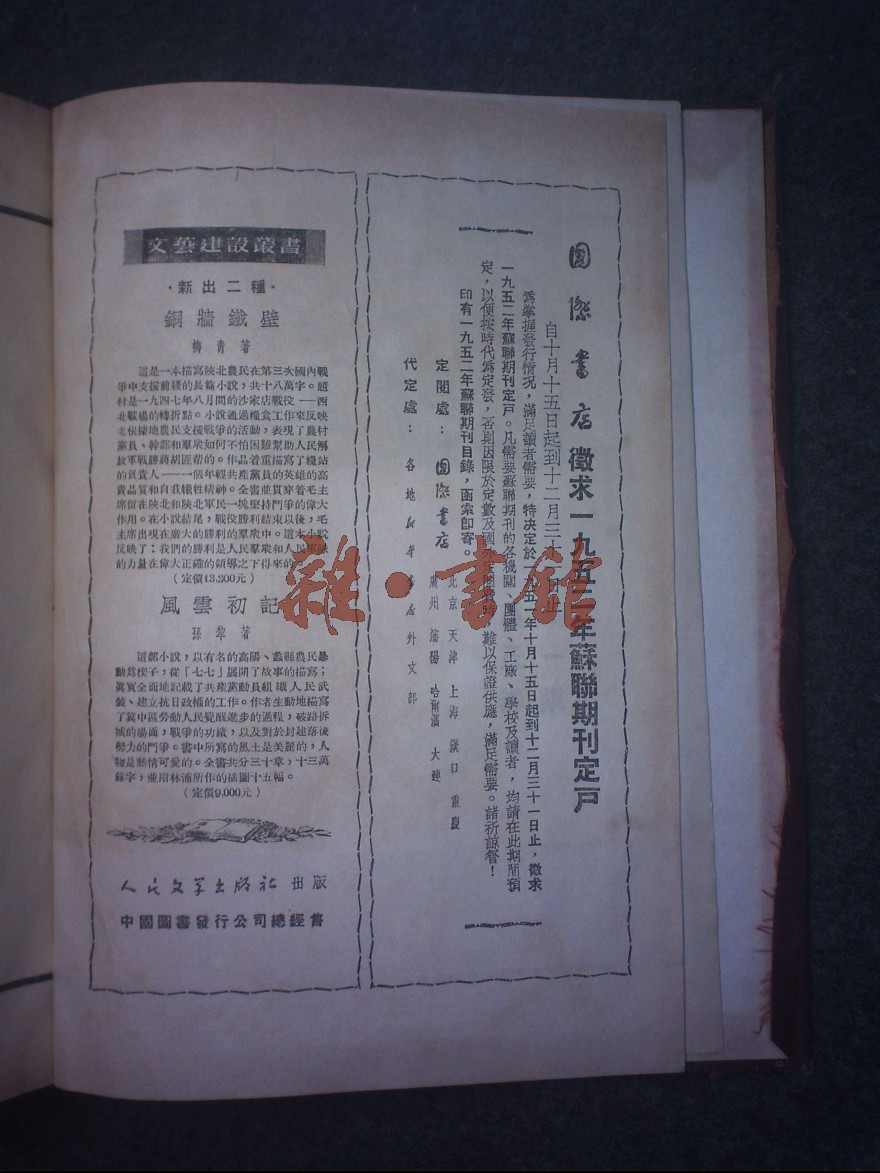 國際書店徵求一九五二年蘇聯期刊定戶
自十月十五日起到十二月三十一日止
為掌握發行情況，滿足讀者需要，特決定於一九五一年十月十五日起到十二月三十一日止，徵求
一九五二年蘇聯期刊定戶。凡需要蘇聯期刊的各機關、團體、工廠、學校及讀者，均請在此期間預
定，以便按時代為定發，否則因限於定數及國外定閱時，難以保證供應，滿足需要。諸祈諒詧！
印有一九五二年蘇聯期刊目錄，函索即寄。
定閱處：國際書店 北京 天津 上海 漢口 重慶
廣州 瀋陽 哈爾濱 大連
代定處：各地新華書店外文部
文藝建設叢書
·新出二種·
銅牆鐵壁
柳青著
這是一本描寫陝北農民在第三次國內戰
爭中支援前綫的長篇小說，共十八萬字。題
材是一九四七年八月間的沙家店戰役——西
北戰場的轉折點。小說通過糧食工作來反映
老根據地農民支援戰爭的活動，表現了農村
黨員、幹部和羣衆如何不怕困難幫助人民解
放軍戰勝蔣胡匪幫的。作品着重描寫了糧站
的負責人——一個年輕共產黨員的英雄的高
貴品質和自我犧牲精神。全書並貫穿着毛主
席留在陝北和陝北軍民一塊堅持鬥爭的偉大
作用。在小說結尾，戰役勝利結束以後，毛
主席出現在廣大的勝利的羣衆中。這本小說
反映了：我們的勝利是人民羣衆和人民軍隊
的力量在偉大正確的領導之下得來的。
（定價13,200元）
風雲初記
孫犂著
這部小說，以有名的高陽、蠡縣農民暴
動爲楔子，從「七七」展開了故事的描寫；
眞實全面地記載了共產黨動員組織人民武
裝、建立抗日政權的工作。作者生動地描寫
了冀中區勞動人民覺醒進步的過程，破路拆
城的場面，戰爭的功績，以及對於封建落後
勢力的鬥爭。書中所寫的風土是美麗的，人
物是熱情可愛的。全書共分三十章，十三萬
餘字，並附林浦所作的插圖十五幅。
（定價9,000元）
人民文學出版社出版
中國圖書發行公司總經售
雜·書館